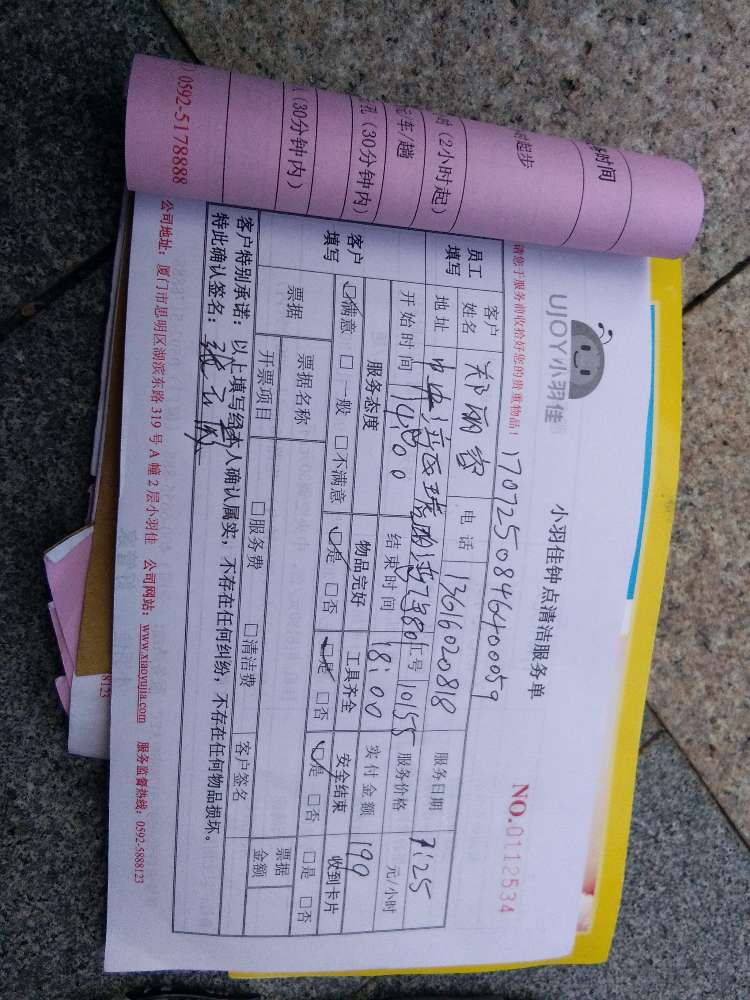 UJOY小羽佳
小羽佳钟点清洁服务单
NO.0112534
请您于服务前收拾好您的贵重物品！
1707250846400059
员工填写
客户姓名 郑丽容 电话 13616020818 服务日期 7.25
地址 中央 工号 10155 服务价格 元/小时
开始时间 14:00 结束时间 18:00 实付金额 199
客户填写
服务态度 物品完好 工具齐全 安全结束 收到卡片
□满意 □一般 □不满意 □是 □否 □是 □否 □是 □否 □是 □否
票据 票据名称： 票据金额
开票项目 □服务费 □清洁费 客户签名
客户特别承诺：以上填写经本人确认属实；不存在任何纠纷；不存在任何物品损坏。
特此确认签名：
公司地址：厦门市思明区湖滨东路319号A幢2层小羽佳 公司网站：www.xiaoyujia.com 服务监督热线：0592-5888123
时间
时起步
时（2小时起）
元/车/趟
孔（30分钟内）
（30分钟内）
0592-5178888
8123